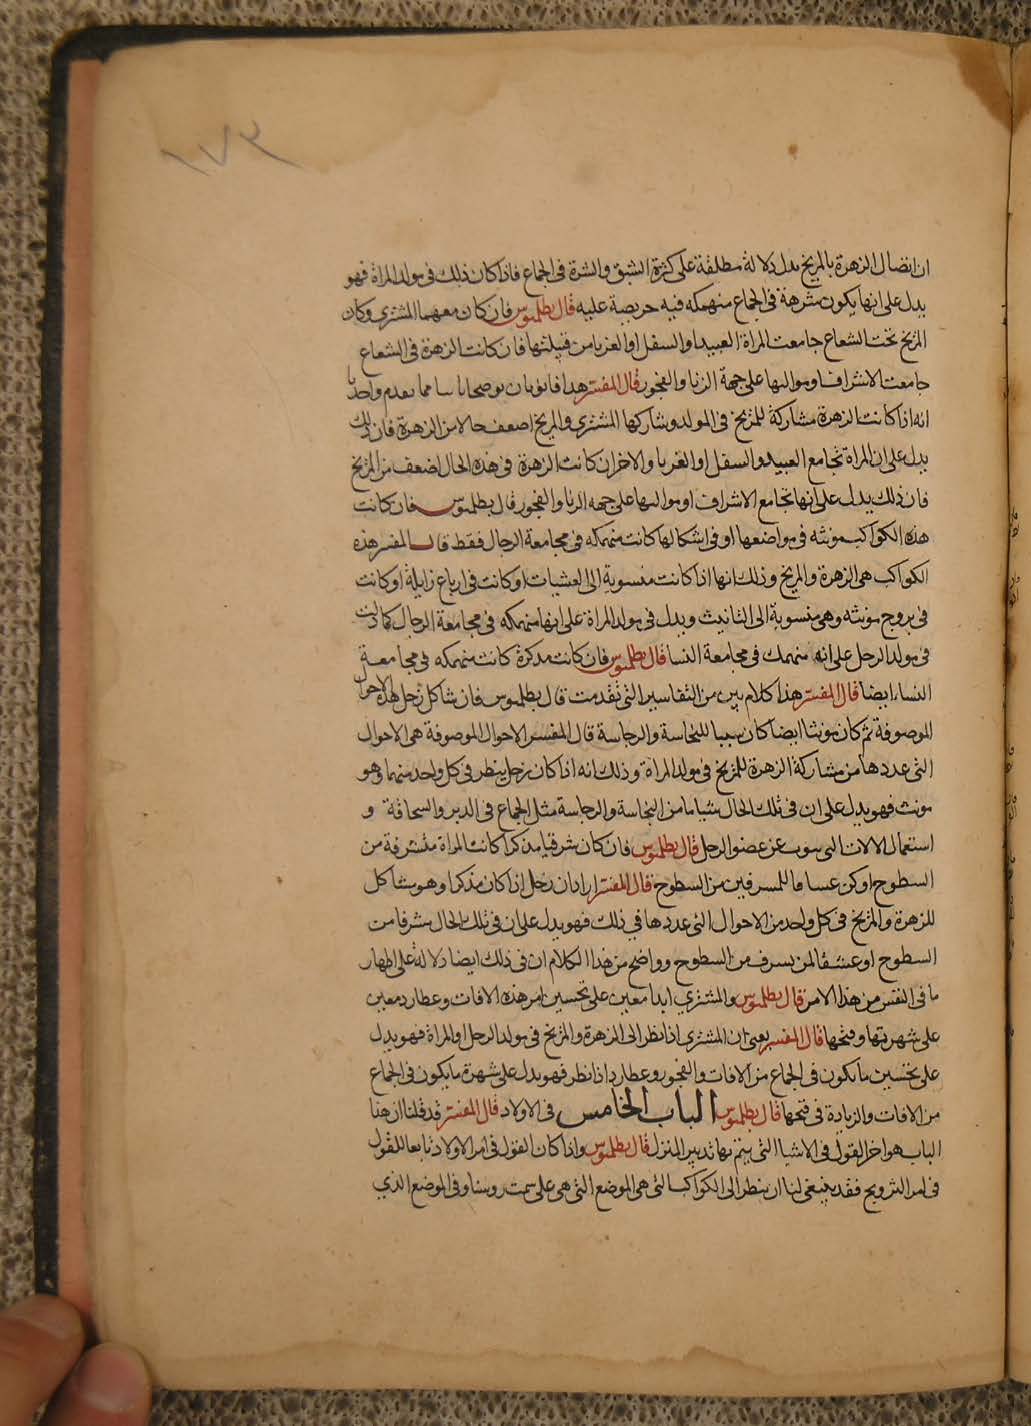 ان اتصال الزهرة بالمريخ يدل دلالة مطلقة على كثرة الشبق والشرة فى الجماع فاذا كان ذلك فى مولد المراة فهو
يدل على انها يكون مشرهة فى الجماع منهمكه فيه حريصة عليه قال بطلميوس فان كان معهما المشترى وكان
المريخ تحت الشعاع جامعت المراة العبيد والسفل او الغربا من قبيلتها فان كانت الزهرة فى الشعاع
جامعت الاشراف او مواليها على جهة الزنا والفجور قال المفسر هذا مما تقدم واحد
انه اذا كانت الزهرة مشاركة للمريخ فى المولد وشاركها المشترى والمريخ اضعف حالا من الزهرة فان ذلك
يدل على ان المراة تجامع العبيد والسفل او الغربا والاخر ان كانت الزهرة فى هذه الحال اضعف من المريخ
فان ذلك يدل على انها تجامع الاشراف او مواليها على جهه الزنا والفجور قال بطلميوس فان كانت
هذه الكواكب مونثه فى مواضعها او فى اشكالها كانت منهمكه فى مجامعة الرجال فقط قال المفسر هذه
الكواكب هى الزهرة والمريخ وذلك انها اذا كانت منسوبة الى العشيات او كانت فى ارباع زايلة او كانت
فى بروج مونثه وهى منسوبة الى التانيث ويدل فى مولد المراة على انها منهمكه فى مجامعة الرجال كما دلت
فى مولد الرجل على انه منهمك فى مجامعة النسا قال بطلميوس فان كانت مذكرة كانت منهمكه فى مجامعة
النساء ايضا قال المفسر هذا كلام بين من التفاسير التى تقدمت قال بطلميوس فان شاكل زحل هذه الاحوال
الموصوفة ثم كان مونثا ايضا كان سببا للنجاسة والرجاسة قال المفسر الاحوال الموصوفة هى الاحوال
التى عددها من مشاركة الزهرة للمريخ فى مولد المراة وذلك انه اذا كان زحل ينظر فى كل واحد منهما وهو
مونث فهو يدل على ان فى تلك الحال شيا ما من النجاسة والرجاسة مثل الجماع فى الدبر والسحاقة و
استعمال الالات التى تنوب عن عضو الرجل قال بطلميوس فان كان شرقيا مذكرا كانت المراة متشرفة من
السطوح او كن عساقا للمسرفين من السطوح قال المفسر اراد ان زحل اذا كان مذكرا وهو مشاكل
للزهرة والمريخ فى كل واحد من الاحوال التى عددها فى ذلك فهو يدل على ان فى تلك الحال شرفا من
السطوح او عشقا لمن يسرف من السطوح وواضح من هذا الكلام ان فى ذلك ايضا دلالة على اظهار
ما فى النفس من هذا الامر قال بطلميوس والمشترى ابدا معين على تحسين امر هذه الافات وعطارد معين
على شهرتها وقبحها قال المفسر يعنى ان المشترى اذا نظر الى الزهرة والمريخ فى مولد الرجل او المراة فهو يدل
على تحسين ما يكون فى الجماع من الافات والفجور وعطارد اذا نظر فهو يدل على شهرة ما يكون فى الجماع
من الافات والزيادة فى قبحها قال بطلميوس الباب الخامس فى الاولاد قال المفسر قد قلنا ان هذا
الباب هو اخر القول فى الاشيا التى يتم بها تدبير المنزل قال بطلميوس واذا كان القول فى امر الاولاد تابعا للقول
فى امر التزويج فقد ينبغى لنا ان ينظر الى الكواكب التى هى الموضع التى هى على سمت روسنا وفى الموضع الذى